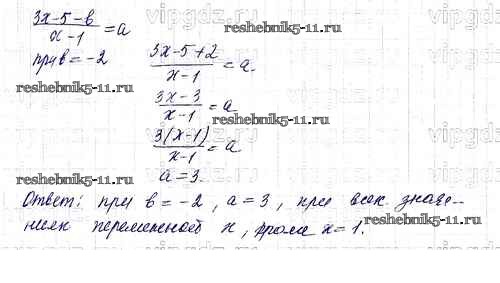 (3x-5-в)/(x-1) = a
при в = -2
(3x-5+2)/(x-1) = a.
(3x-3)/(x-1) = a
3(x-1)/(x-1) = a
a = 3.
Ответ: при в = -2, a = 3, при всех значе-
ниях переменной x, кроме x = 1.
vipgdz.ru
reshebnik5-11.ru
reshebnik5-11.ru
reshebnik5-11.ru
reshebnik5-11.ru
reshebnik5-11.ru